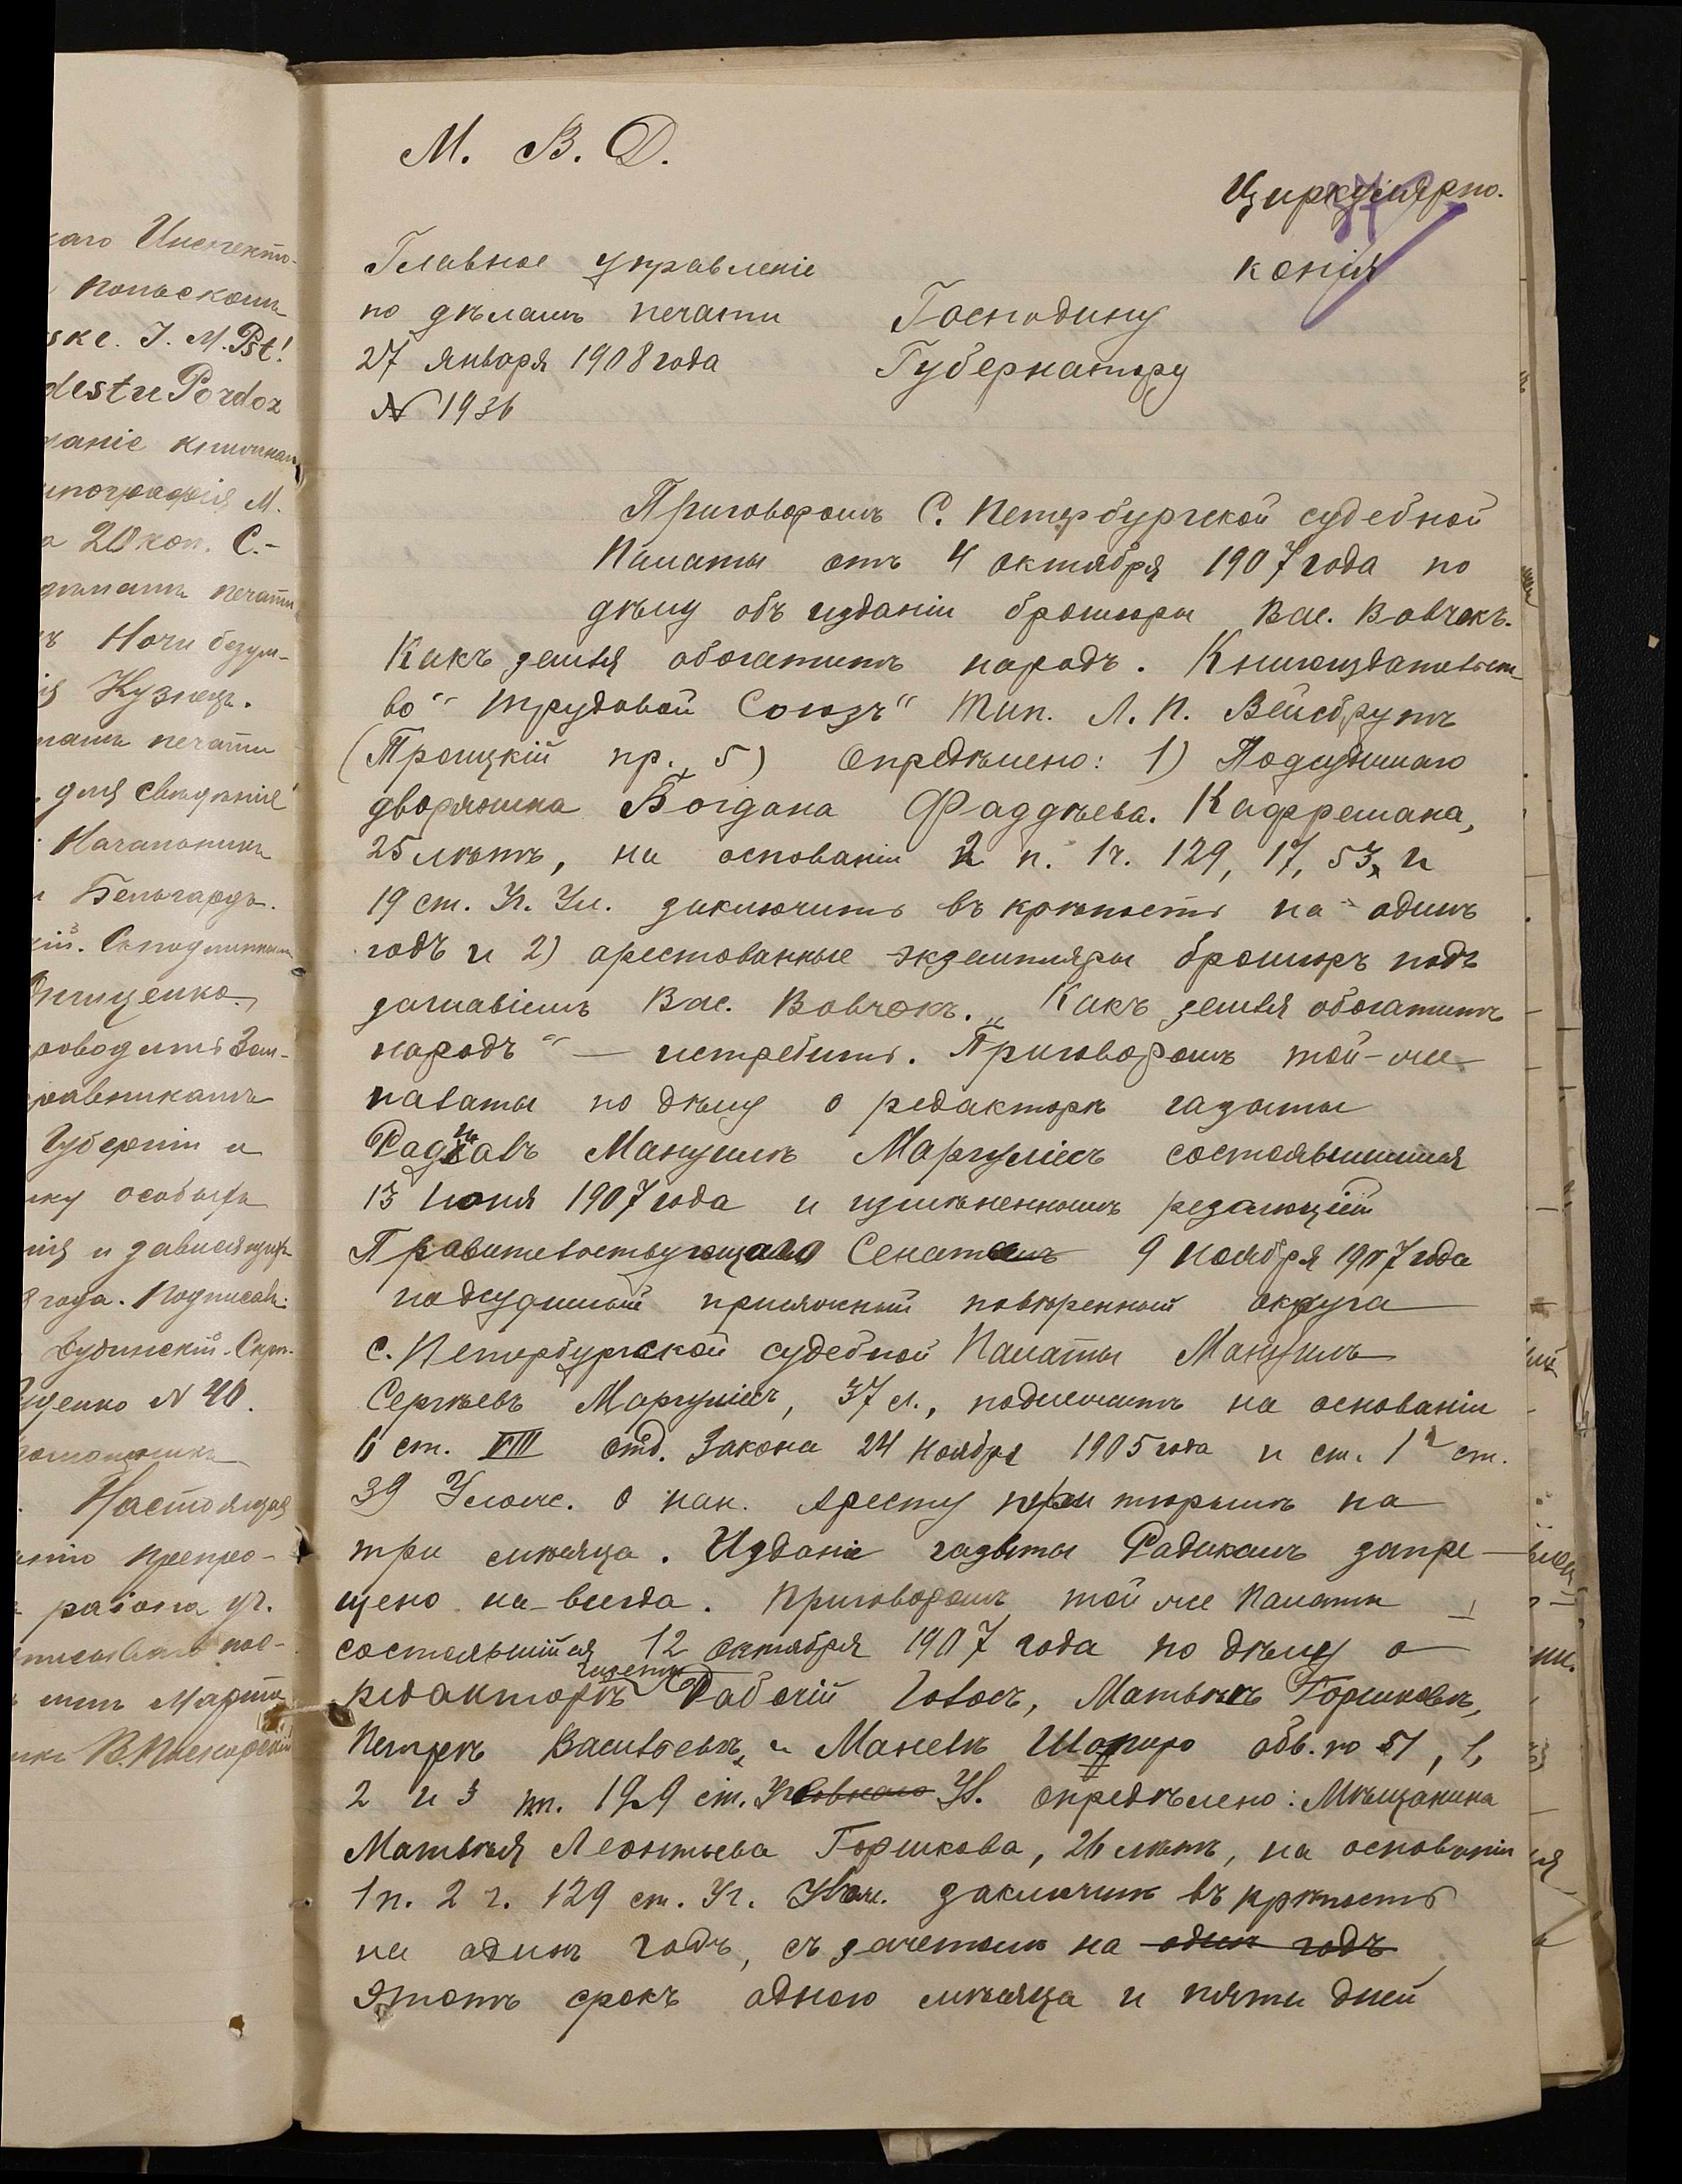 М. В. Д.
Циркулярно.
копія
Главное управленіе
по дѣламъ печати
27 января 1908 года
N 1936
Господину
Губернатору
Приговоромъ С. Петербургской судебной
Палаты отъ 4 октября 1907 года по
дѣлу объ изданіи брошюры Вас. Вовчокъ.
Какъ земля обогатитъ народъ. Книгоиздательст
во "Трудовой Союзъ" Тип. Л. П. Вейсбрутъ
(Троицкій пр. 5) опредѣлено: 1) Подсудимаго
дворянина Богдана Фаддѣева. Каффемана,
25 лѣтъ, на основаніи 2 п. 1 ч. 129, 17, 53, и
19 ст. Уг. Ул. заключить въ крѣпость на одинъ
годъ и 2) арестованные экземпляры брошюръ подъ
заглавіемъ Вас. Вовчокъ. "Какъ земля обогатитъ
народъ" — истребить. Приговоромъ той-же
палаты по дѣлу о редакторѣ газеты
Радикалъ Мануилѣ Маргуліесъ состоявшимся
13 Іюня 1907 года и измѣненнымъ резолюціей
Правительствующаго Сената 9 ноября 1907 года
подсудимый присяжный повѣренный округа
С. Петербургской судебной Палаты Мануилъ
Сергѣевъ Маргуліесъ, 37 л., подлежитъ на основаніи
6 ст. VIII отд. Закона 24 ноября 1905 года и ст. 1 ст.
39 Улож. о нак. Аресту при тюрьмѣ на
три мѣсяца. Изданіе газеты Радикалъ запре-
щено на-всегда. Приговоромъ той же Палаты
состоявшійся 12 октября 1907 года по дѣлу о
редакторѣ газеты Рабочій Голосъ, Матвѣѣ Горшковѣ,
Петрѣ Васильевѣ и Маневѣ Шапиро обв. по 51, 1,
2 и 3 пп. 129 ст. Уг Ул. опредѣлено: Мѣщанина
Матвѣя Леонтьева Горшкова, 26 лѣтъ, на основаніи
1 п. 2 ч. 129 ст. Уг. Улож. заключить въ крѣпость
на одинъ годъ, съ зачетомъ на одинъ годъ
этотъ срокъ одного мѣсяца и пяти дней
каго Инспекто-
польскомъ
ske. J. M. Pst!
dest u Pordoz
типографія М.
20 коп. С.-
дѣламъ печати
Ночи безум-
Кузнецъ.
печати
для свѣдѣнія
Начальникъ
Бельгардъ.
Онищенко.
Губерніи и
особыхъ
и зависящихъ
года. Подписалъ:
N 40.
Настоящая
препро-
района уг.
Марта